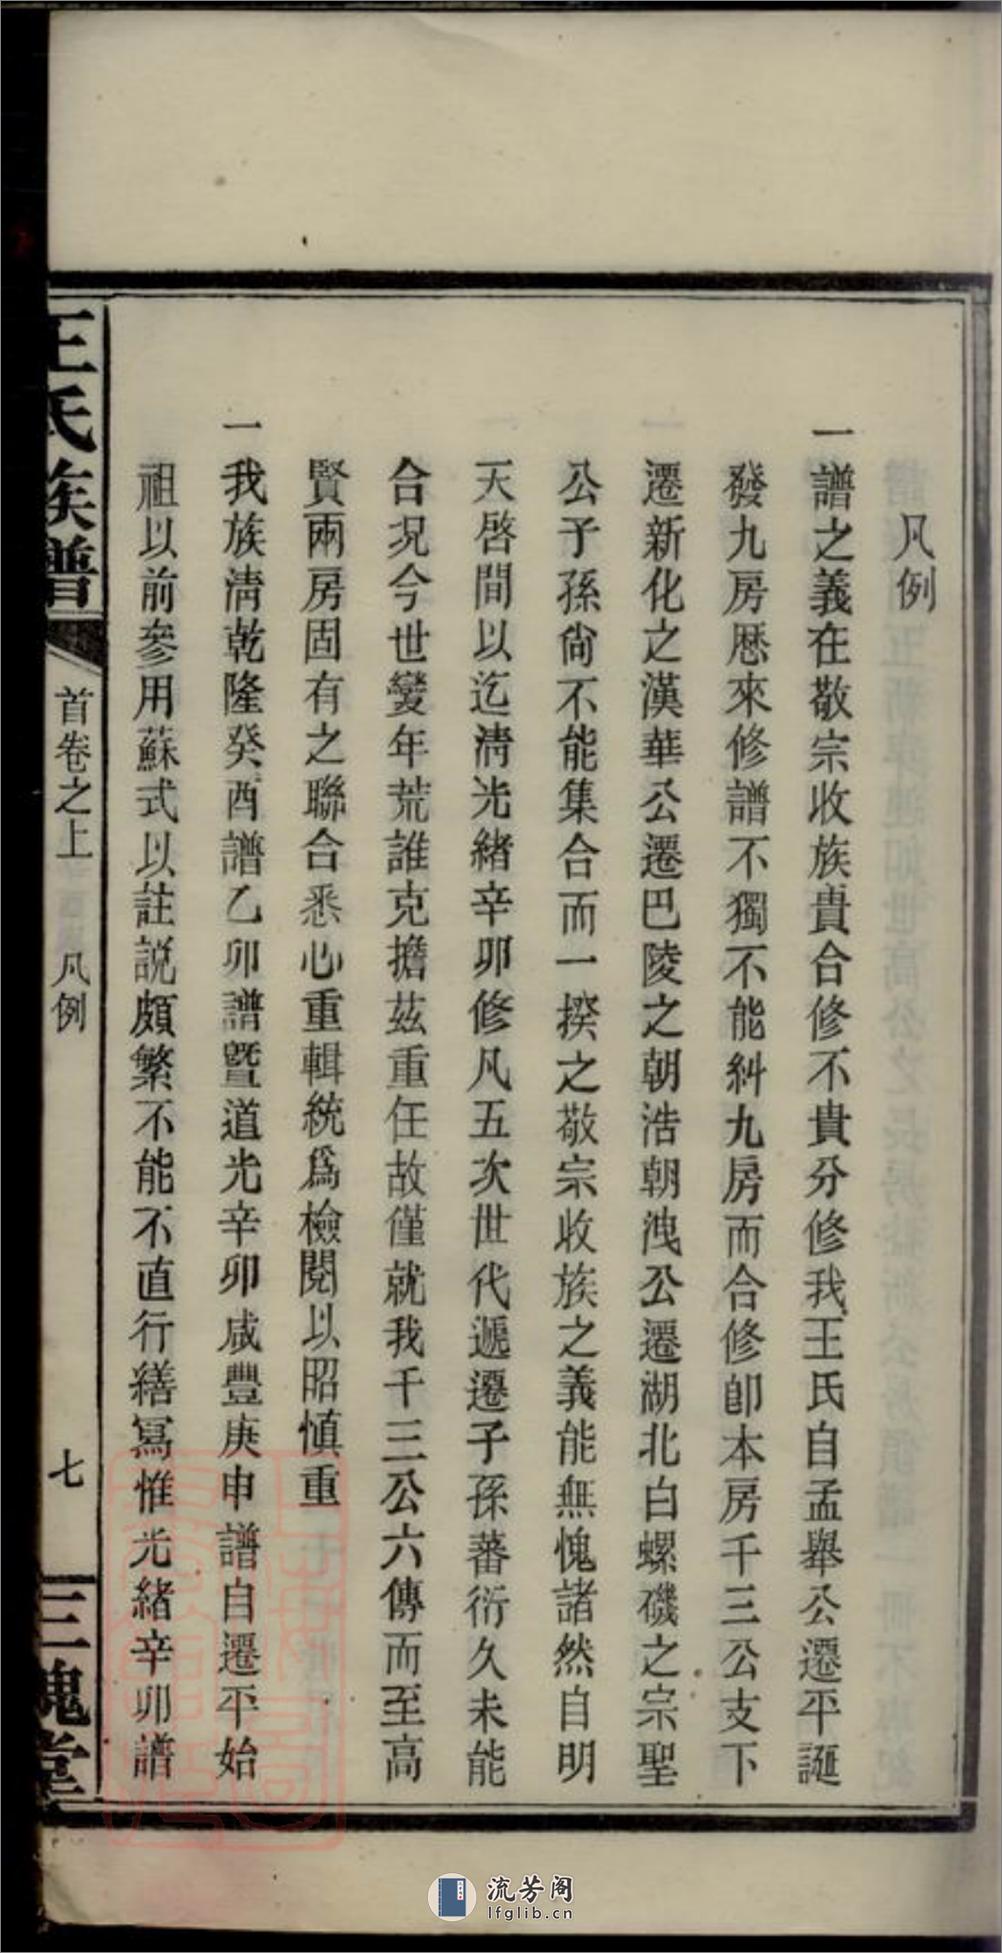 凡例
一譜之義在敬宗收族貴合修不貴分修我王氏自孟舉公遷平誕
發九房歷來修譜不獨不能糾九房而合修卽本房千三公支下
遷新化之漢華公遷巴陵之朝浩朝洩公遷湖北白螺磯之宗聖
公子孫尙不能集合而一揆之敬宗收族之義能無愧諸然自明
天啓間以迄淸光緒辛卯修凡五次世代遞遷子孫蕃衍久未能
合况今世變年荒誰克擔茲重任故僅就我千三公六傳而至高
賢兩房固有之聯合悉心重輯統爲檢閱以昭愼重
一我族淸乾隆癸酉譜乙卯譜曁道光辛卯咸豐庚申譜自遷平始
祖以前參用蘇式以註説頗繁不能不直行繕寫惟光緒辛卯譜
王氏族譜
首卷之上
凡例
七
三槐堂
流芳阁
lfglib.cn